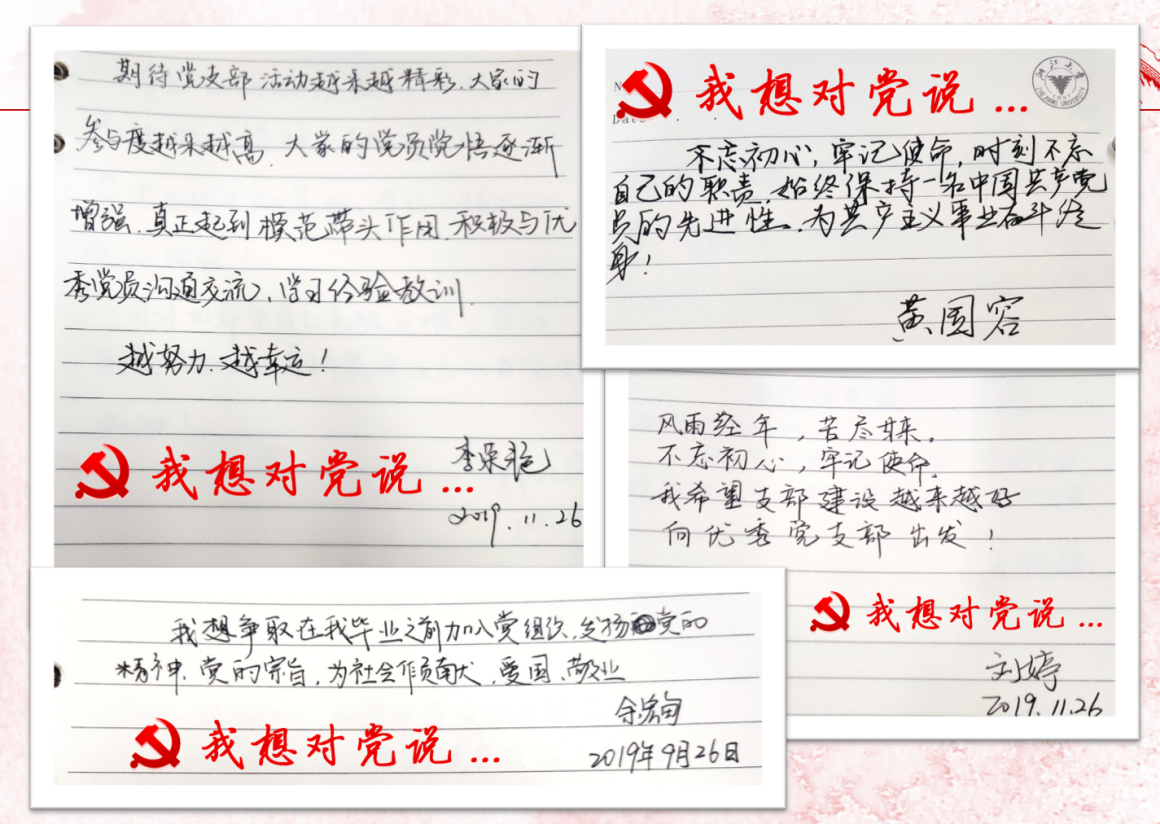 期待党支部活动越来越精彩、大家的
参与度越来越高、大家的党员党悟逐渐
增强、真正起到模范带头作用、积极与优
秀党员沟通交流、学习经验教训.
越努力、越幸运!
我想对党说...
2019.11.26
我想对党说...
浙江大学
ZHEJIANG UNIVERSITY
不忘初心,牢记使命,时刻不忘
自己的职责、始终保持一名中国共产党
员的先进性、为共产主义事业奋斗终
身!
黄国容
风雨经年,苦尽甘来。
不忘初心,牢记使命。
我希望支部建设越来越好
向优秀党支部出发!
我想对党说...
刘婷
2019.11.26
我想争取在我毕业之前加入党组织,发扬党的
精神、党的宗旨,为社会作贡献,爱国、敬业
我想对党说...
2019年9月26日